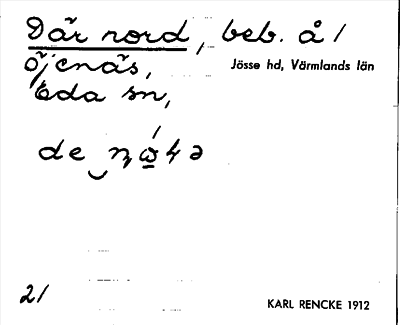 Där nord, beb. å /
Öjenäs, Jösse hd, Värmlands län
Eda sn,
de
21 KARL RENCKE 1912